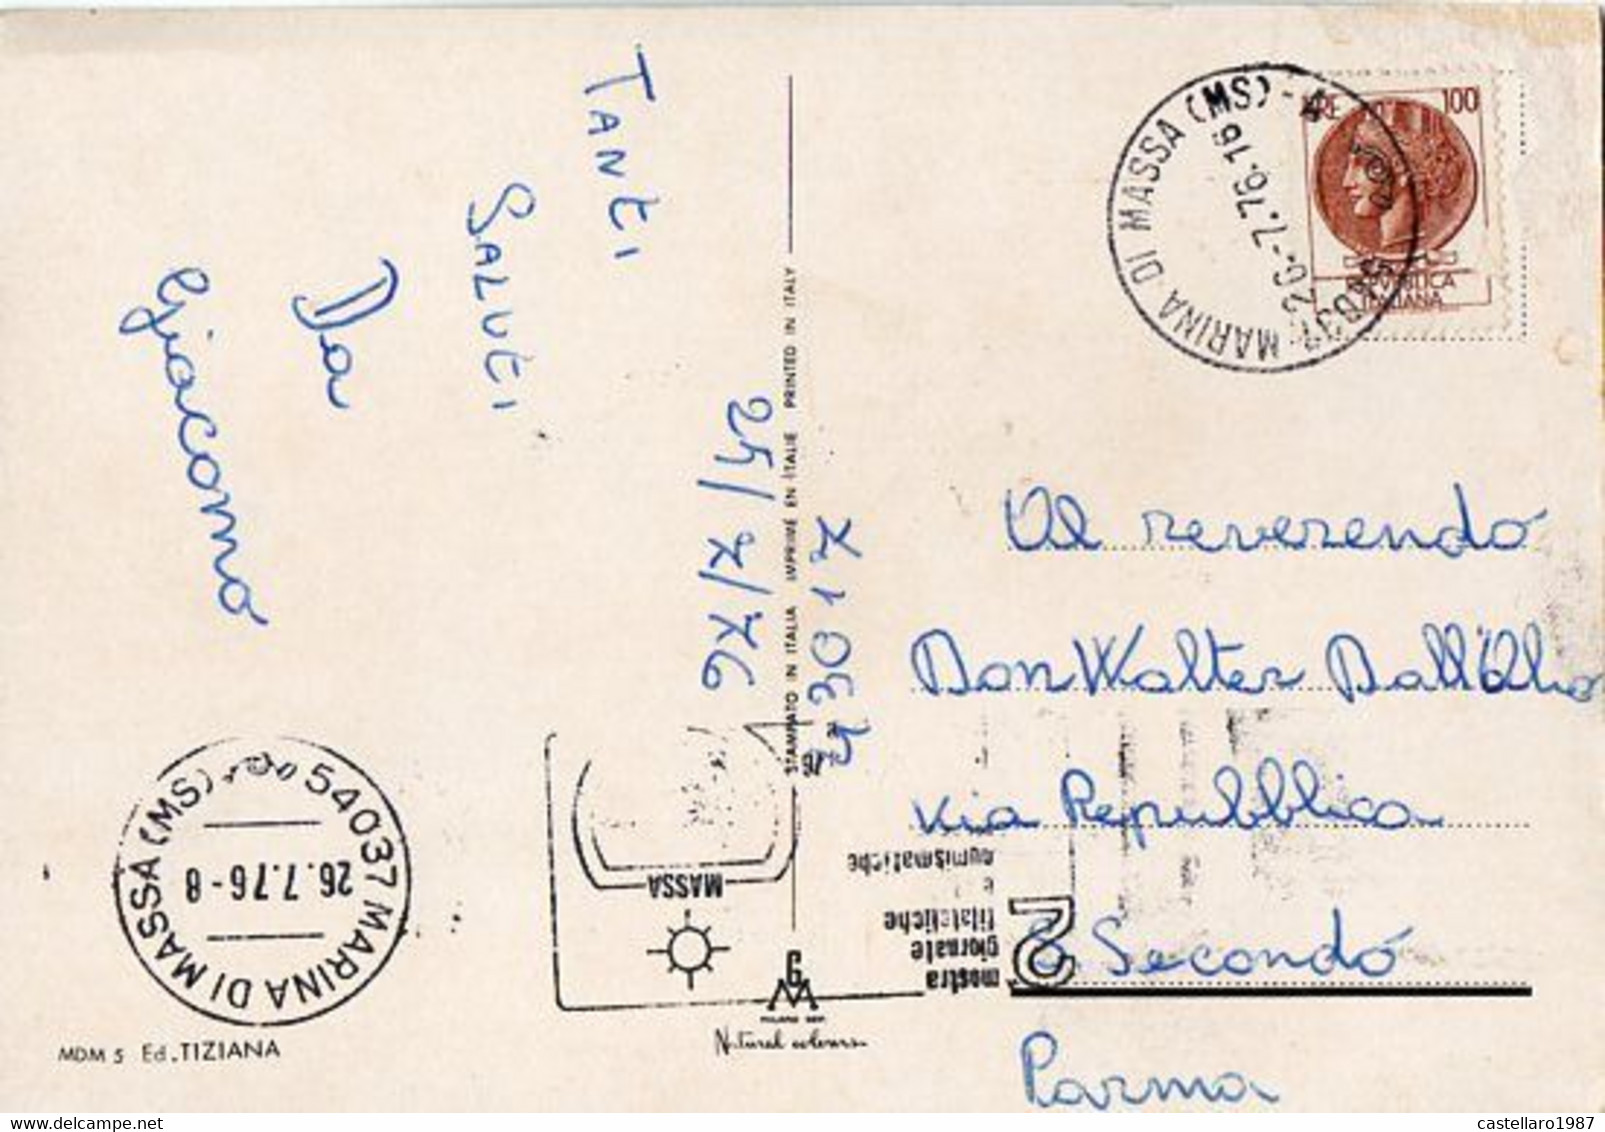 TANTI
SALUTI
Da
Giacomo
24/7/76
43017
STAMPATO IN ITALIA IMPRIMÉ EN ITALIE PRINTED IN ITALY
LIRE 100
REPVBBLICA
ITALIANA
54037 MARINA DI MASSA (MS) - A
26.-7.76.16
Al reverendo
Don Walter Dall'Olio
via Repubblica
S. Secondo
Parma
54037 MARINA DI MASSA (MS)
26.7.76-8
MASSA
76
2
mostra
giornate
filateliche
e
numismatiche
MDM 5 Ed. TIZIANA
Natural colour
castellaro1987